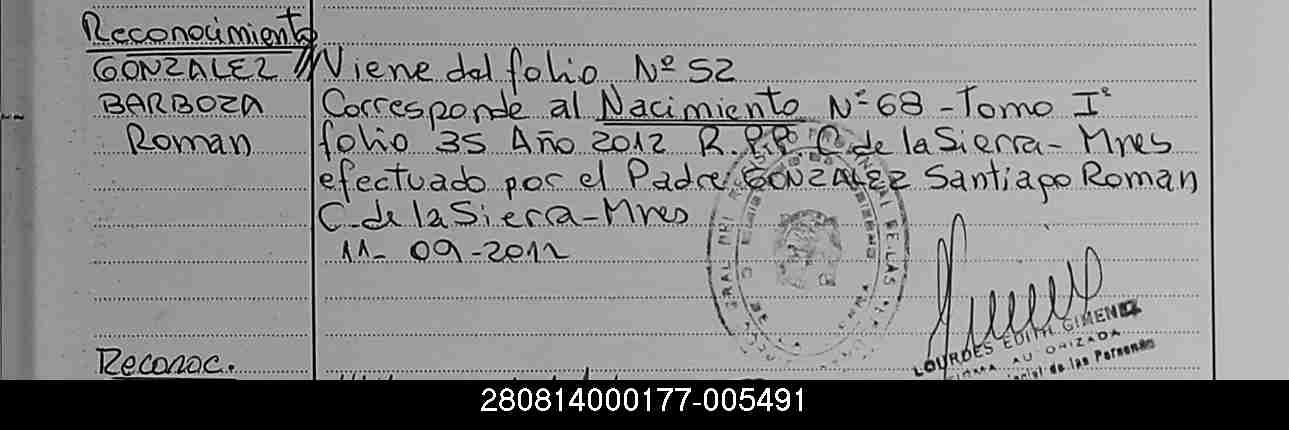 Reconocimiento
GONZALEZ
BARBOZA
Roman
Viene del folio Nº 52
Corresponde al Nacimiento Nº 68 - Tomo Iº
folio 35 Año 2012 R.P.P. C. de la Sierra - Mnes
efectuado por el Padre GONZALEZ Santiago Roman
C. de la Sierra - Mnes
11- 09-2012
LOURDES EDITH GIMENEZ
de las Personas
Reconoc.
280814000177-005491